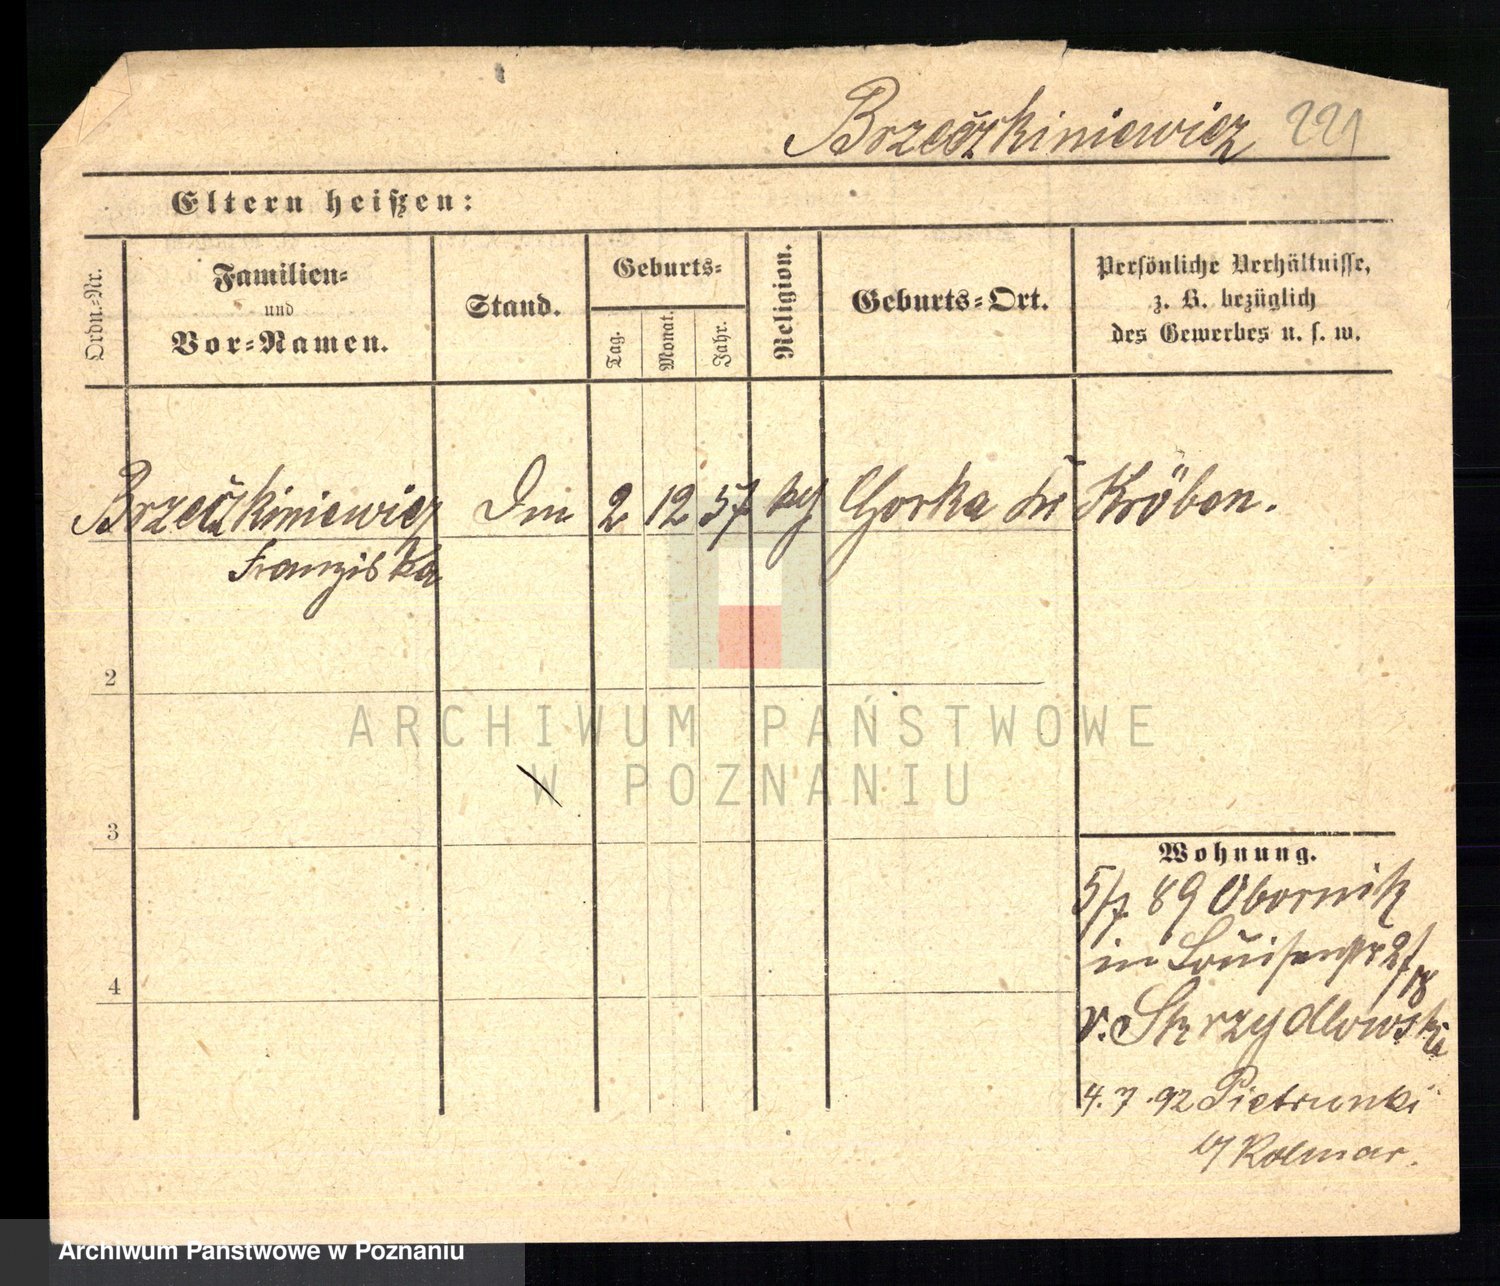 Brzeczkiniewicz 221
Eltern heißen:
Ordn.-Nr.
Familien-
und
Vor-Namen.
Stand.
Geburts-
Tag.
Monat.
Jahr.
Religion.
Geburts-Ort.
Persönliche Verhältnisse,
z. B. bezüglich
des Gewerbes u. s. w.
Brzeczkiniewicz 2 12 57 Gorka Kröben.
Franziska
2
3
4
Wohnung.
5/7 89 Obornik
in Louisenstr
v. Skrzydlowska
4. 7. 92 Pietrunki
b/ Kolmar.
ARCHIWUM PAŃSTWOWE
W POZNANIU
Archiwum Państwowe w Poznaniu